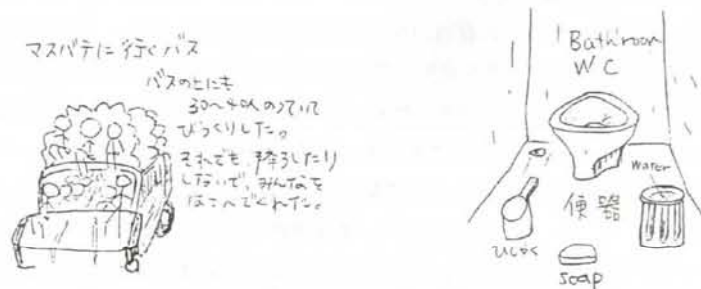 マスバテに行くバス
バスの上にも
30〜40人のっていて
びっくりした。
それでも、降ろしたり
しないで、みんなを
はこんでくれた。
Bathroom
WC
Water
便器
ひしゃく
soap